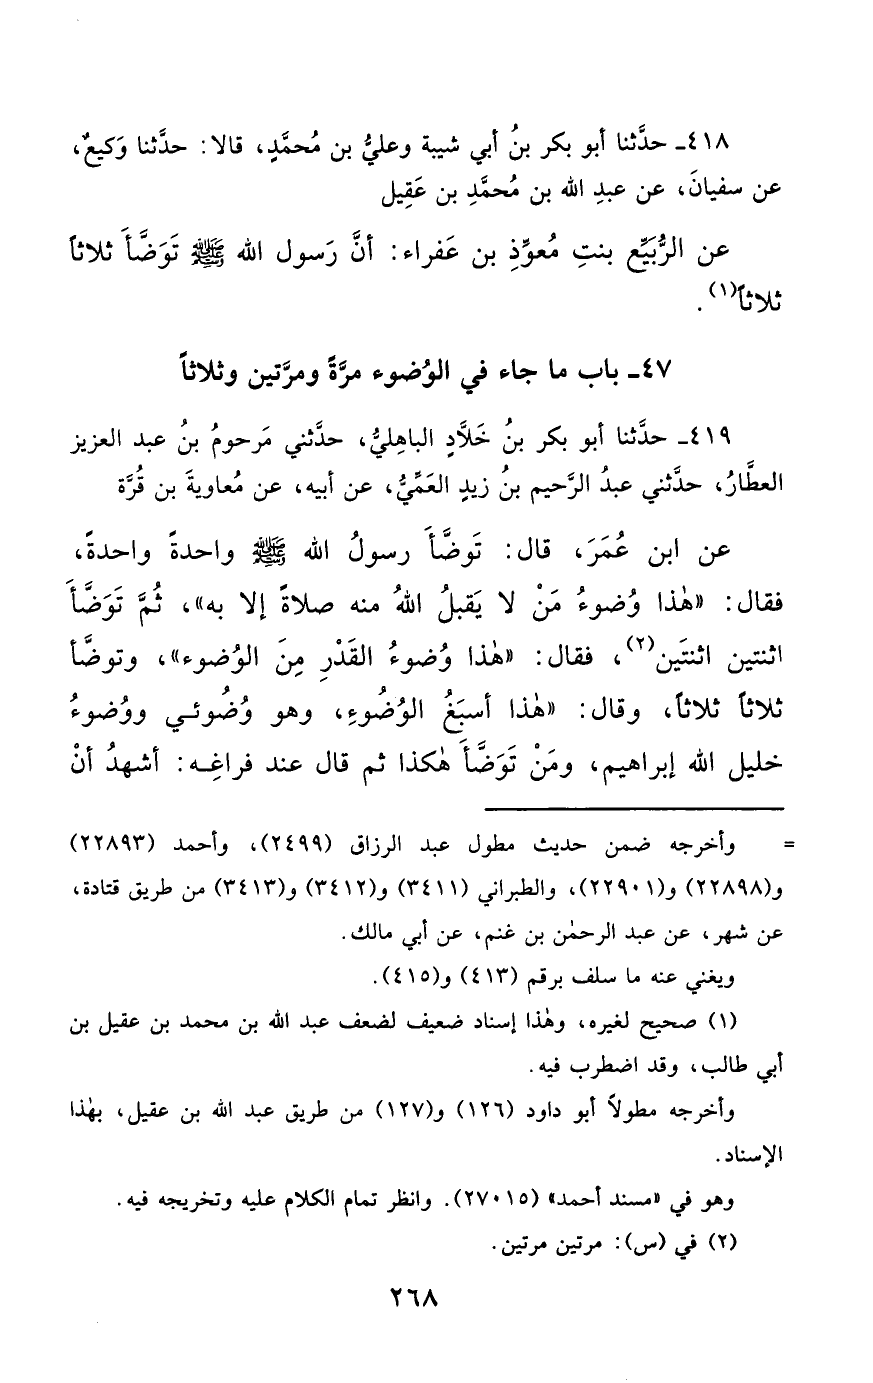 ٤١٨ـ حدَّثنا أبو بكر بنُ أبي شيبة وعليُّ بن مُحمَّدٍ، قالا: حدَّثنا وَكيعٌ،
عن سفيانَ، عن عبدِ الله بن مُحمَّدِ بن عَقِيل
عن الرُّبَيِّع بنتِ مُعوِّذِ بن عَفراء: أنَّ رَسول الله ﷺ تَوَضَّأَ ثلاثاً
ثلاثاً(١).
٤٧ـ باب ما جاء في الوُضوء مرَّةً ومرَّتين وثلاثاً
٤١٩ـ حدَّثنا أبو بكر بنُ خَلَّادٍ الباهِليُّ، حدَّثني مَرحومُ بنُ عبد العزيز
العطَّارُ، حدَّثني عبدُ الرَّحيم بنُ زيدٍ العَمِّيُّ، عن أبيه، عن مُعاويةَ بن قُرَّة
عن ابن عُمَرَ، قال: تَوضَّأَ رسولُ الله ﷺ واحدةً واحدةً،
فقال: «هٰذا وُضوءُ مَنْ لا يَقبلُ اللهُ منه صلاةً إلا به»، ثُمَّ تَوَضَّأَ
اثنتين اثنتَين(٢)، فقال: «هٰذا وُضوءُ القَدْرِ مِنَ الوُضوء»، وتوضَّأ
ثلاثاً ثلاثاً، وقال: «هٰذا أسبَغُ الوُضُوءِ، وهو وُضُوئـي ووُضوءُ
خليل الله إبراهيم، ومَنْ تَوَضَّأَ هٰكذا ثم قال عند فراغِـه: أشهدُ أنْ
= وأخرجه ضمن حديث مطول عبد الرزاق (٢٤٩٩)، وأحمد (٢٢٨٩٣)
و(٢٢٨٩٨) و(٢٢٩٠١)، والطبراني (٣٤١١) و(٣٤١٢) و(٣٤١٣) من طريق قتادة،
عن شهر، عن عبد الرحمٰن بن غنم، عن أبي مالك.
ويغني عنه ما سلف برقم (٤١٣) و(٤١٥).
(١) صحيح لغيره، وهٰذا إسناد ضعيف لضعف عبد الله بن محمد بن عقيل بن
أبي طالب، وقد اضطرب فيه.
وأخرجه مطولاً أبو داود (١٢٦) و(١٢٧) من طريق عبد الله بن عقيل، بهٰذا
الإسناد.
وهو في «مسند أحمد» (٢٧٠١٥). وانظر تمام الكلام عليه وتخريجه فيه.
(٢) في (س): مرتين مرتين.
٢٦٨